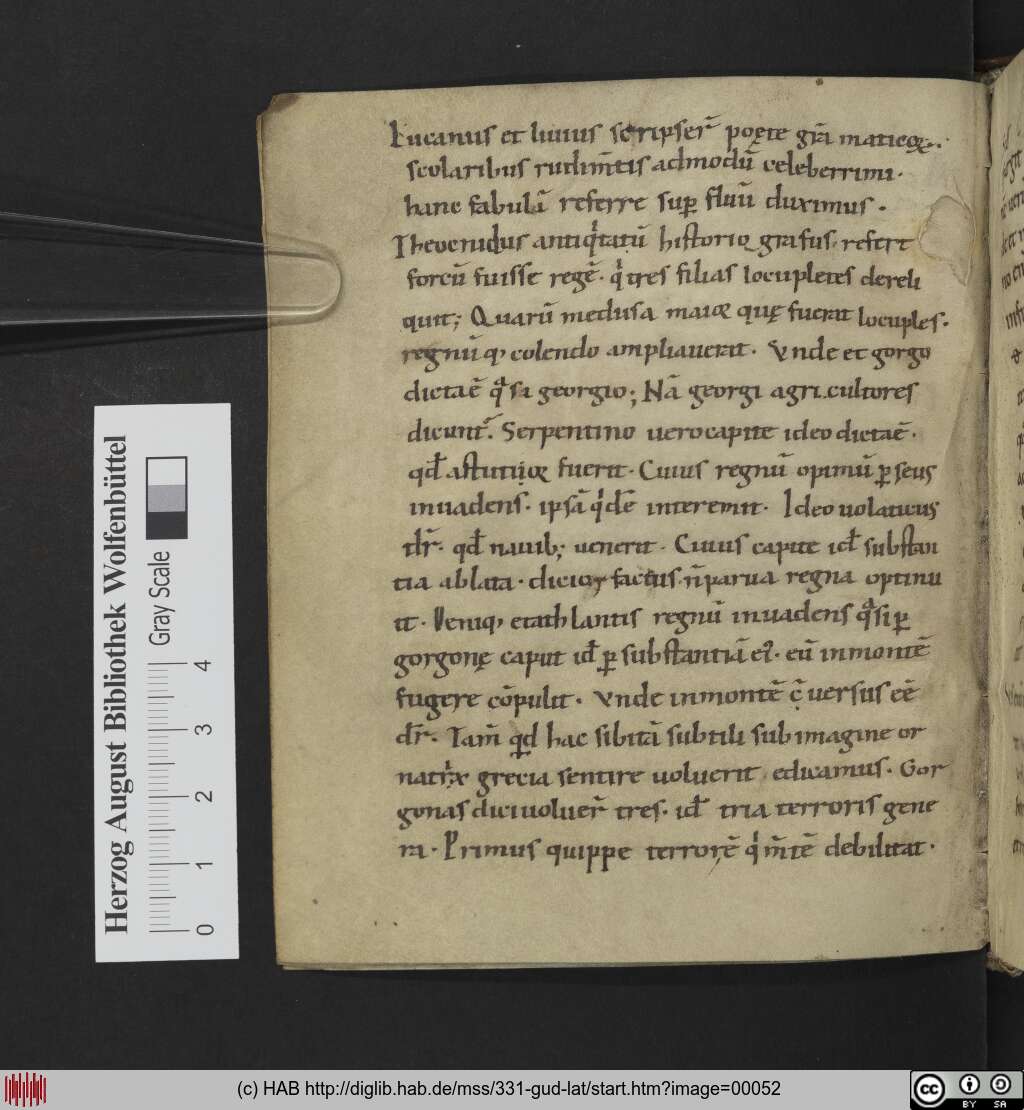 Lucanus et liuius scripser̄ poęte grā maticoꝝ.
scolaribus rudim̄tis admodū celeberrimi.
hanc fabulā referre suꝑ fluū duximus.
Theocnidus antiqͥtatū historio grafus. refert
forcū fuisse regē. qͥ tres filias locupletes dereli
quit; Quarū medusa maior quę fuerat locuples.
regnū qꝫ colendo ampliauerat. Vnde et gorgo
dicta ē qᷓsi georgio; Nā georgi agri cultores
dicunt᷑. Serpentino uero capite ideo dicta ē.
qđ astutior fuerit. Cuius regnū opimū ꝑseus
inuadens. ipsā qͥdē interemit. Ideo uolaticus
dr̄. qđ nauibꝫ uenerit. Cuius capite id ÷ substan
tia ablata. dicior factus. n̄ parua regna optinu
it. Deniqꝫ et athlantis regnū inuadens qᷓsi ꝑ
gorgonę caput id ÷ ꝑ substantiā eiꝰ. eū in montē
fugere cōpulit. Vnde in montē cōuersus eē
dr̄. Tam̄ quid hac sibi tā subtili sub imagine or
natrix grecia sentire uoluerit edicamus. Gor
gonas dici uoluer̄ tres. id ÷ tria terroris gene
ra. Primus quippe terror ē qͥ m̄tē debilitat.
Herzog August Bibliothek Wolfenbüttel
Gray Scale
0 1 2 3 4
(c) HAB http://diglib.hab.de/mss/331-gud-lat/start.htm?image=00052
cc BY SA